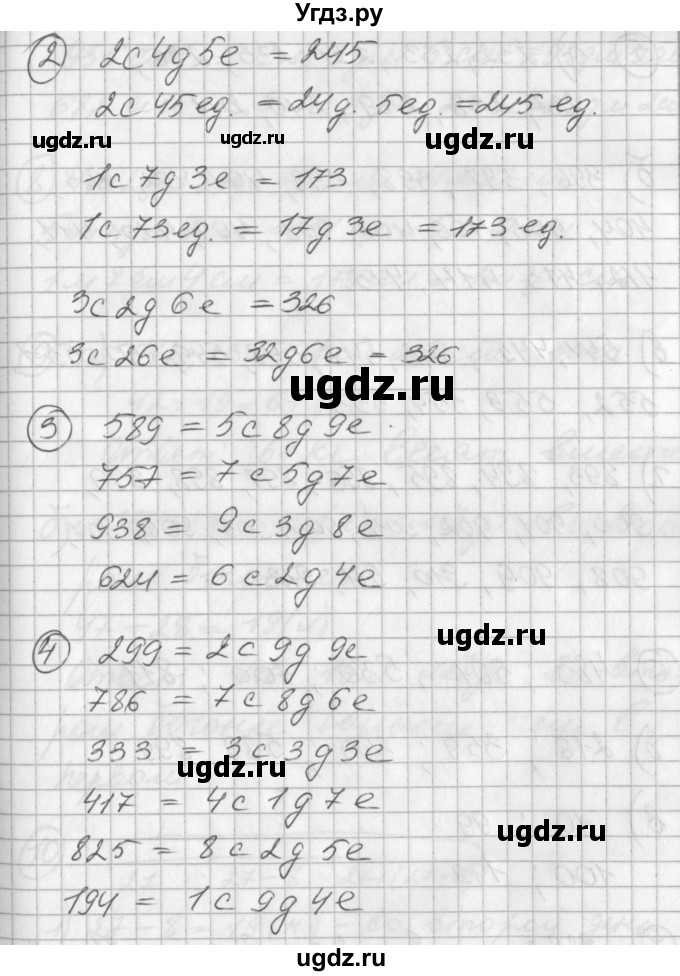 Угдз.ру
2 2с 4д 5е = 245
2с 45ед. = 24д. 5ед. = 245 ед.
ugdz.ru ugdz.ru ugdz.ru
1с 7д 3е = 173
1с 73ед. = 17д. 3е = 173 ед.
3с 2д 6е = 326
3с 26е = 32д6е = 326
ugdz.ru
3 589 = 5с 8д 9е.
757 = 7с 5д 7е
938 = 9с 3д 8е
624 = 6с 2д 4е
ugdz.ru
4 299 = 2с 9д 9е
786 = 7с 8д 6е
333 = 3с 3д 3е
ugdz.ru
417 = 4с 1д 7е
ugdz.ru
825 = 8с 2д 5е
194 = 1с 9д 4е